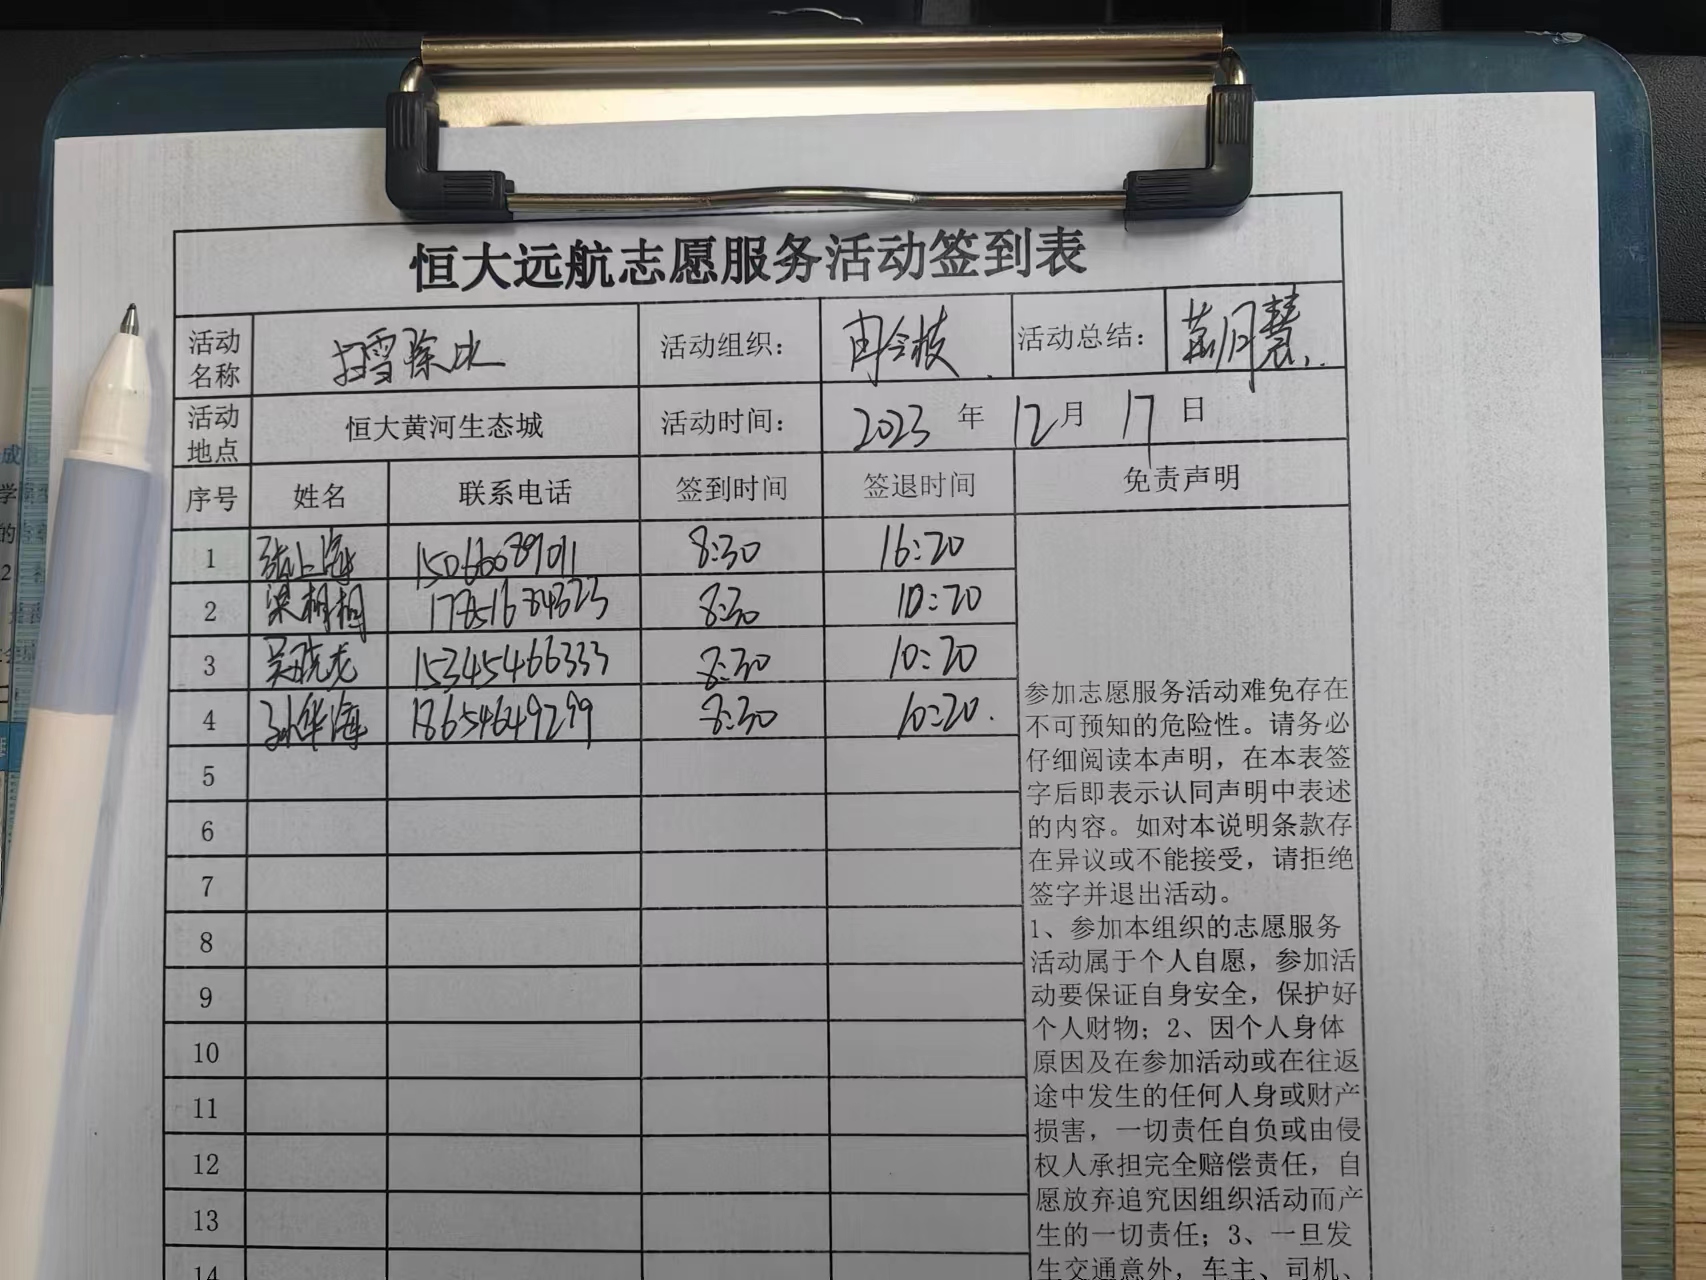 恒大远航志愿服务活动签到表
活动名称 扫雪除冰 活动组织： 冉令枝 活动总结： 苗月慧
活动地点 恒大黄河生态城 活动时间： 2023 年 12 月 17 日
序号 姓名 联系电话 签到时间 签退时间 免责声明
1 张上海 15066689011 8:30 16:20
2 梁相相 17851684323 8:30 10:20
3 吴晓龙 15345466333 8:30 10:20
4 孙华海 18654649299 8:30 10:20.
5
6
7
8
9
10
11
12
13
14
参加志愿服务活动难免存在
不可预知的危险性。请务必
仔细阅读本声明，在本表签
字后即表示认同声明中表述
的内容。如对本说明条款存
在异议或不能接受，请拒绝
签字并退出活动。
1、参加本组织的志愿服务
活动属于个人自愿，参加活
动要保证自身安全，保护好
个人财物；2、因个人身体
原因及在参加活动或在往返
途中发生的任何人身或财产
损害，一切责任自负或由侵
权人承担完全赔偿责任，自
愿放弃追究因组织活动而产
生的一切责任；3、一旦发
生交通意外，车主、司机、